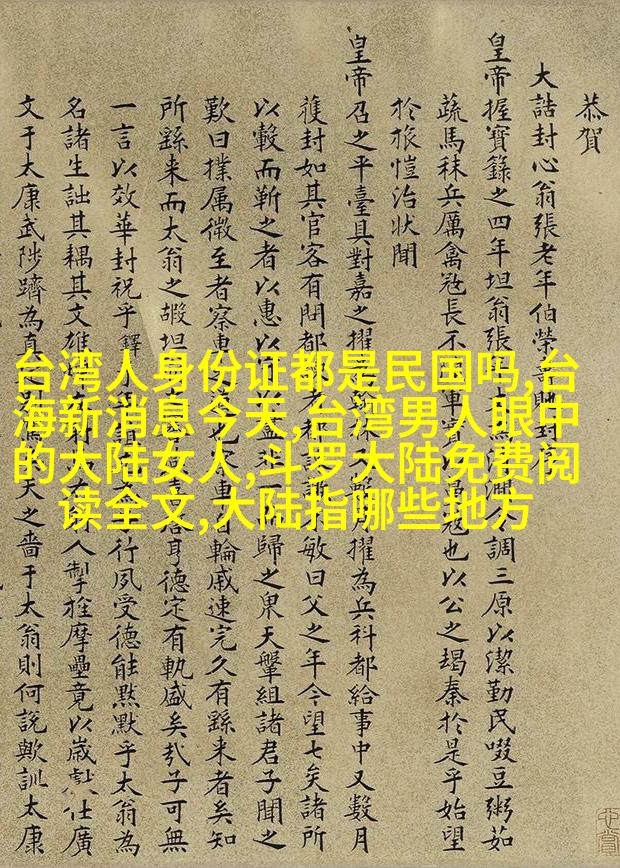 恭賀
大誥封心翁張老年伯榮
皇帝握寶錄之四年坦翁張調三原以潔勤民啜豆粥如
蔬馬秣兵厲禽㓂長不冦也以公之竭秦於是乎始望
於旅愷治狀聞
皇帝召之平臺具對嘉之擢擢為兵科都給事中又數月
獲封如其官客有閎都敏曰父之年今望七矣諸所
以轂而靳之者以惠以歸之眾天鞶組諸君子聞之
歎曰撲属微至者察車輪戚速完久有繇来者矣知
所繇来而太翁之嘏坦耳德定有軌盛矣哉子可無
一言以效華封祝乎鐸行夙受德能黙默乎太翁為
名諸生詘其耦其文雄人摩壘竟以歲仕廣
文于太康武陟躋為真天之嗇于太翁則何說歟訓太康
台湾人身份证都是民国吗,台
海新消息今天,台湾男人眼中
的大陆女人,斗罗大陆免费阅
读全文,大陆指哪些地方